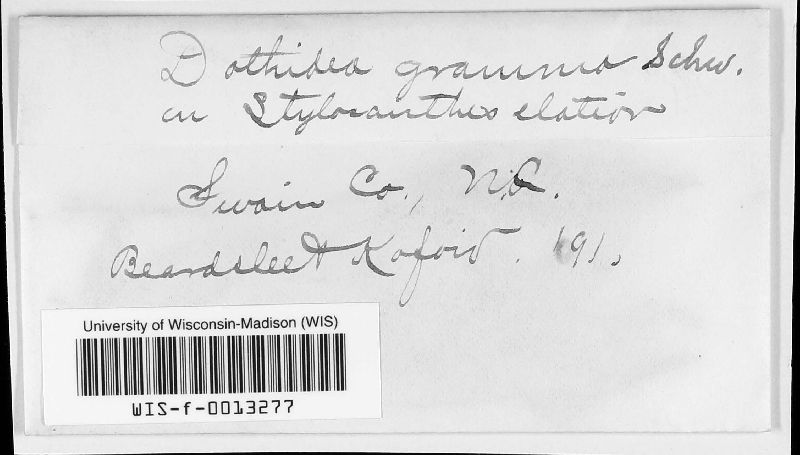 Dothidea gramma Schw.
on Stylosanthes elatior
Swain Co., N.C.
Beardslee & Kofoid. 191.
University of Wisconsin-Madison (WIS)
WIS-f-0013277